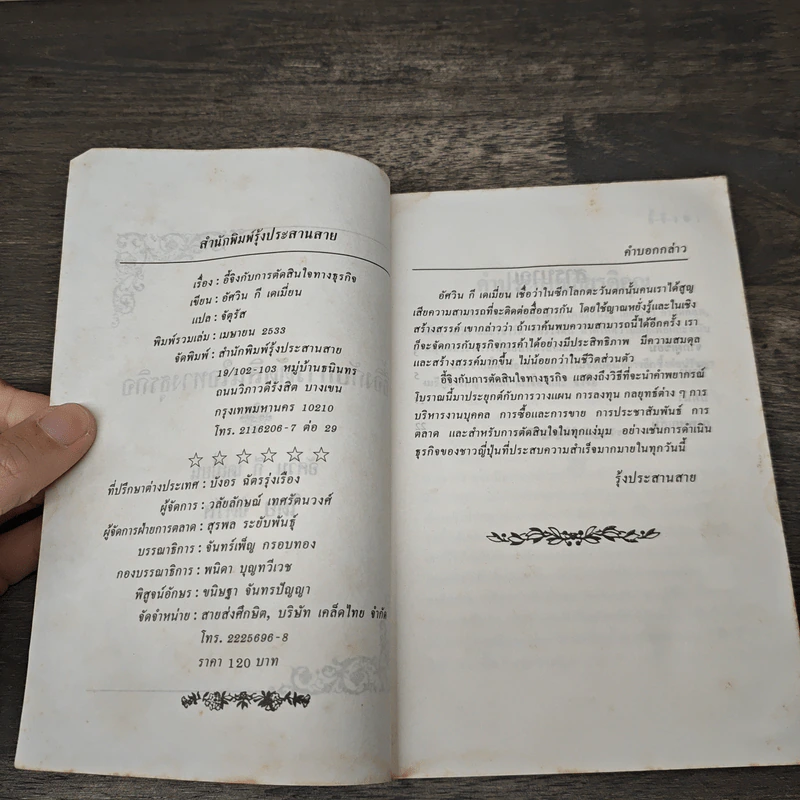 สำนักพิมพ์รุ้งประสานสาย
เรื่อง : อี้จิงกับการตัดสินใจทางธุรกิจ
เขียน : อัศวิน กี เดเมี่ยน
แปล : จัตุรัส
พิมพ์รวมเล่ม : เมษายน 2533
จัดพิมพ์ : สำนักพิมพ์รุ้งประสานสาย
19/102-103 หมู่บ้านธนินทร
ถนนวิภาวดีรังสิต บางเขน
กรุงเทพมหานคร 10210
โทร. 2116206-7 ต่อ 29
☆ ☆ ☆ ☆ ☆ ☆
ที่ปรึกษาต่างประเทศ : บังอร ฉัตรรุ่งเรือง
ผู้จัดการ : วลัยลักษณ์ เทศรัตนวงศ์
ผู้จัดการฝ่ายการตลาด : สุรพล ระยับพันธุ์
บรรณาธิการ : จันทร์เพ็ญ กรอบทอง
กองบรรณาธิการ : พนิดา บุญทวีเวช
พิสูจน์อักษร : ขนิษฐา จันทรปัญญา
จัดจำหน่าย : สายส่งศึกษิต, บริษัท เคล็ดไทย จำกัด
โทร. 2225696-8
ราคา 120 บาท
คำบอกกล่าว
อัศวิน กี เดเมี่ยน เชื่อว่าในซีกโลกตะวันตกนั้นคนเราได้สูญ
เสียความสามารถที่จะติดต่อสื่อสารกัน โดยใช้ญาณหยั่งรู้และในเชิง
สร้างสรรค์ เขากล่าวว่า ถ้าเราค้นพบความสามารถนี้ได้อีกครั้ง เรา
ก็จะจัดการกับธุรกิจการค้าได้อย่างมีประสิทธิภาพ มีความสมดุล
และสร้างสรรค์มากขึ้น ไม่น้อยกว่าในชีวิตส่วนตัว
อี้จิงกับการตัดสินใจทางธุรกิจ แสดงถึงวิธีที่จะนำคำพยากรณ์
โบราณนี้มาประยุกต์กับการวางแผน การลงทุน กลยุทธ์ต่าง ๆ การ
บริหารงานบุคคล การซื้อและการขาย การประชาสัมพันธ์ การ
ตลาด และสำหรับการตัดสินใจในทุกแง่มุม อย่างเช่นการดำเนิน
ธุรกิจของชาวญี่ปุ่นที่ประสบความสำเร็จมากมายในทุกวันนี้
รุ้งประสานสาย